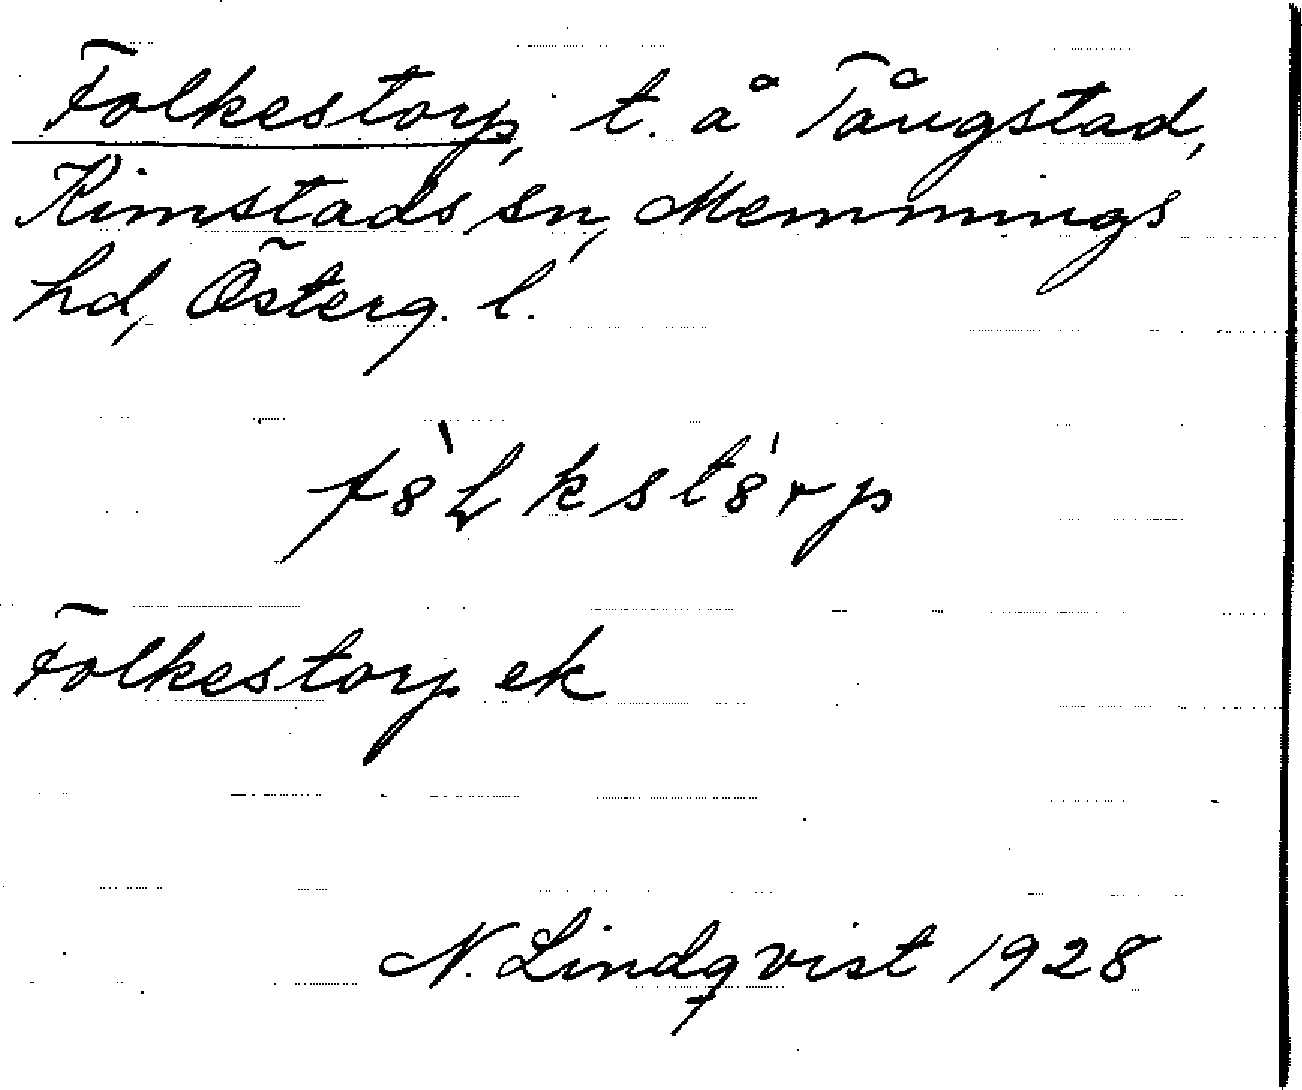 Folkestorp, t. å Tångstad,
Kimstads sn, Memmings
hd, Österg. l.
fò̀Lkstó̀rp
Folkestorp ek
N. Lindqvist 1928